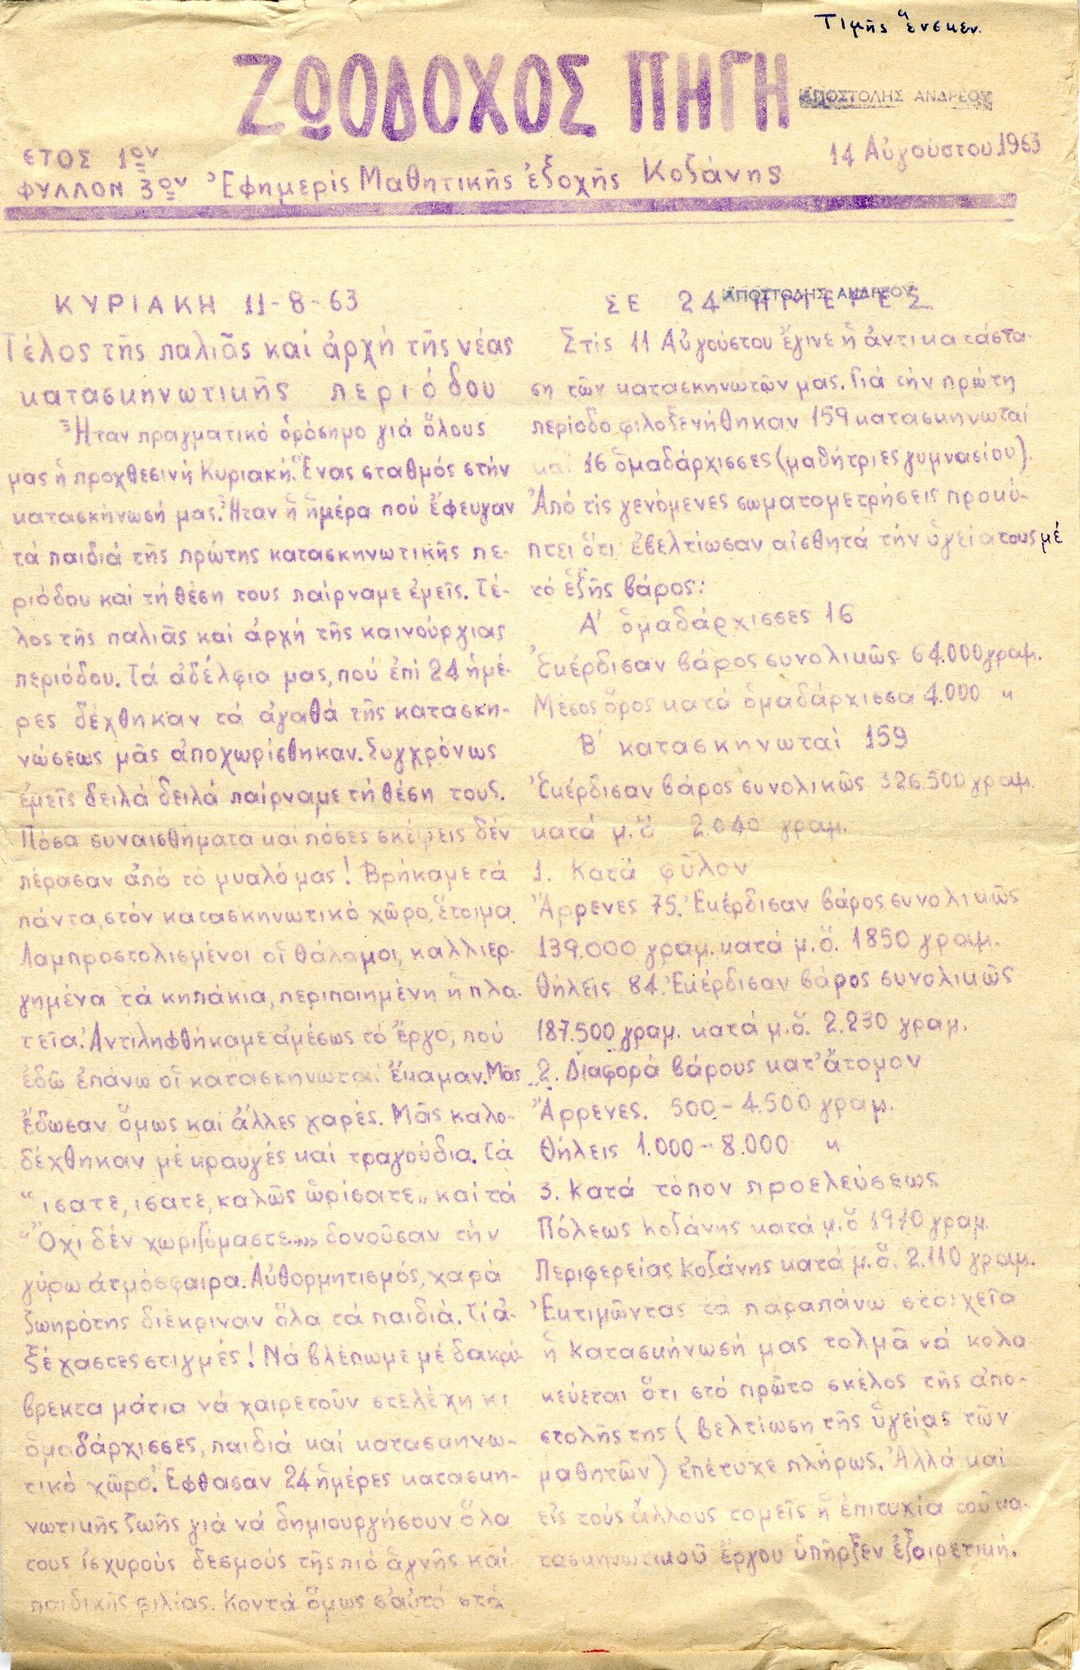 Τιμῆς ἕνεκεν.
ΖΩΟΔΟΧΟΣ ΠΗΓΗ
ΑΠΟΣΤΟΛΗΣ ΑΝΔΡΕΟΥ
ΕΤΟΣ 1ον
14 Αὐγούστου 1963
ΦΥΛΛΟΝ 3ον Ἐφημερὶς Μαθητικῆς ἐξοχῆς Κοζάνης
ΚΥΡΙΑΚΗ 11-8-63
Τέλος τῆς παλιᾶς καί ἀρχή τῆς νέας
κατασκηνωτικῆς περιόδου
Ἦταν πραγματικό ὁρόσημο γιά ὅλους
μας ἡ προχθεσινή Κυριακή. Ἕνας σταθμός στήν
κατασκήνωσή μας. Ἦταν ἡ ἡμέρα πού ἔφευγαν
τά παιδιά τῆς πρώτης κατασκηνωτικῆς πε-
ριόδου καί τή θέση τους παίρναμε ἐμεῖς. Τέ-
λος τῆς παλιᾶς καί ἀρχή τῆς καινούργιας
περιόδου. Τά ἀδέλφια μας, πού ἐπί 24 ἡμέ-
ρες δέχθηκαν τά ἀγαθά τῆς κατασκη-
νώσεως μᾶς ἀποχωρίσθηκαν. Συγχρόνως
ἐμεῖς δειλά δειλά παίρναμε τή θέση τους.
Πόσα συναισθήματα καί πόσες σκέψεις δέν
πέρασαν ἀπό τό μυαλό μας! Βρήκαμε τά
πάντα, στόν κατασκηνωτικό χῶρο, ἕτοιμα.
Λαμπροστολισμένοι οἱ θάλαμοι, καλλιερ-
γημένα τά κηπάκια, περιποιημένη ἡ πλα-
τεῖα. Ἀντιληφθήκαμε ἀμέσως τό ἔργο, πού
ἐδῶ ἐπάνω οἱ κατασκηνωταί ἔκαμαν. Μᾶς
ἔδωσαν ὅμως καί ἄλλες χαρές. Μᾶς καλο-
δέχθηκαν μέ κραυγές καί τραγούδια. Τά
"ισατε, ισατε, καλῶς ὡρίσατε,, καί τά
"Ὄχι δέν χωριζόμαστε..,, δονοῦσαν τήν
γύρω ἀτμόσφαιρα. Αὐθορμητισμός, χαρά
ζωηρότης διέκριναν ὅλα τά παιδιά. Τί ἀ-
ξέχαστες στιγμές! Νά βλέπωμε μέ δακρύ-
βρεκτα μάτια νά χαιρετοῦν στελέχη κι
ὁμαδάρχισσες, παιδιά καί κατασκηνω-
τικό χῶρο. Ἔφθασαν 24 ἡμέρες κατασκη-
νωτικῆς ζωῆς γιά νά δημιουργήσουν ὅλα
τους ἰσχυρούς δεσμούς τῆς πιό ἁγνῆς καί
παιδικῆς φιλίας. Κοντά ὅμως σ' αὐτό στά
ΣΕ 24 ΗΜΕΡΕΣ
ΑΠΟΣΤΟΛΗΣ ΑΝΔΡΕΟΥ
Στίς 11 Αὐγούστου ἔγινε ἡ ἀντικατάστα-
ση τῶν κατασκηνωτῶν μας. Γιά τήν πρώτη
περίοδο φιλοξενήθηκαν 159 κατασκηνωταί
καί 16 ὁμαδάρχισσες (μαθήτριες γυμνασίου).
Ἀπό τίς γενόμενες σωματομετρήσεις προκύ-
πτει ὅτι ἐβελτίωσαν αἰσθητά τήν ὑγεία τους μέ
τό ἑξῆς βάρος:
Α' ὁμαδάρχισσες 16
Ἐκέρδισαν βάρος συνολικῶς 64.000 γραμ.
Μέσος ὅρος κατά ὁμαδάρχισσα 4.000 "
Β' κατασκηνωταί 159
Ἐκέρδισαν βάρος συνολικῶς 326.500 γραμ.
κατά μ.ὅ 2.040 γραμ.
1. Κατά φῦλον
Ἄρρενες 75. Ἐκέρδισαν βάρος συνολικῶς
139.000 γραμ. κατά μ.ὅ. 1850 γραμ.
Θήλεις 84. Ἐκέρδισαν βάρος συνολικῶς
187.500 γραμ. κατά μ.ὅ. 2.230 γραμ.
2. Διαφορά βάρους κατ' ἄτομον
Ἄρρενες. 500 - 4.500 γραμ.
Θήλεις 1.000 - 8.000 "
3. Κατά τόπον προελεύσεως
Πόλεως Κοζάνης κατά μ.ὅ 1970 γραμ.
Περιφερείας Κοζάνης κατά μ.ὅ. 2.110 γραμ.
Ἐκτιμῶντας τά παραπάνω στοιχεῖα
ἡ Κατασκήνωσή μας τολμᾶ νά κολα-
κεύεται ὅτι στό πρῶτο σκέλος τῆς ἀπο-
στολῆς της (βελτίωση τῆς ὑγείας τῶν
μαθητῶν) ἐπέτυχε πλήρως. Ἀλλά καί
εἰς τούς ἄλλους τομεῖς ἡ ἐπιτυχία τοῦ κα-
τασκηνωτικοῦ ἔργου ὑπῆρξεν ἐξαιρετική.